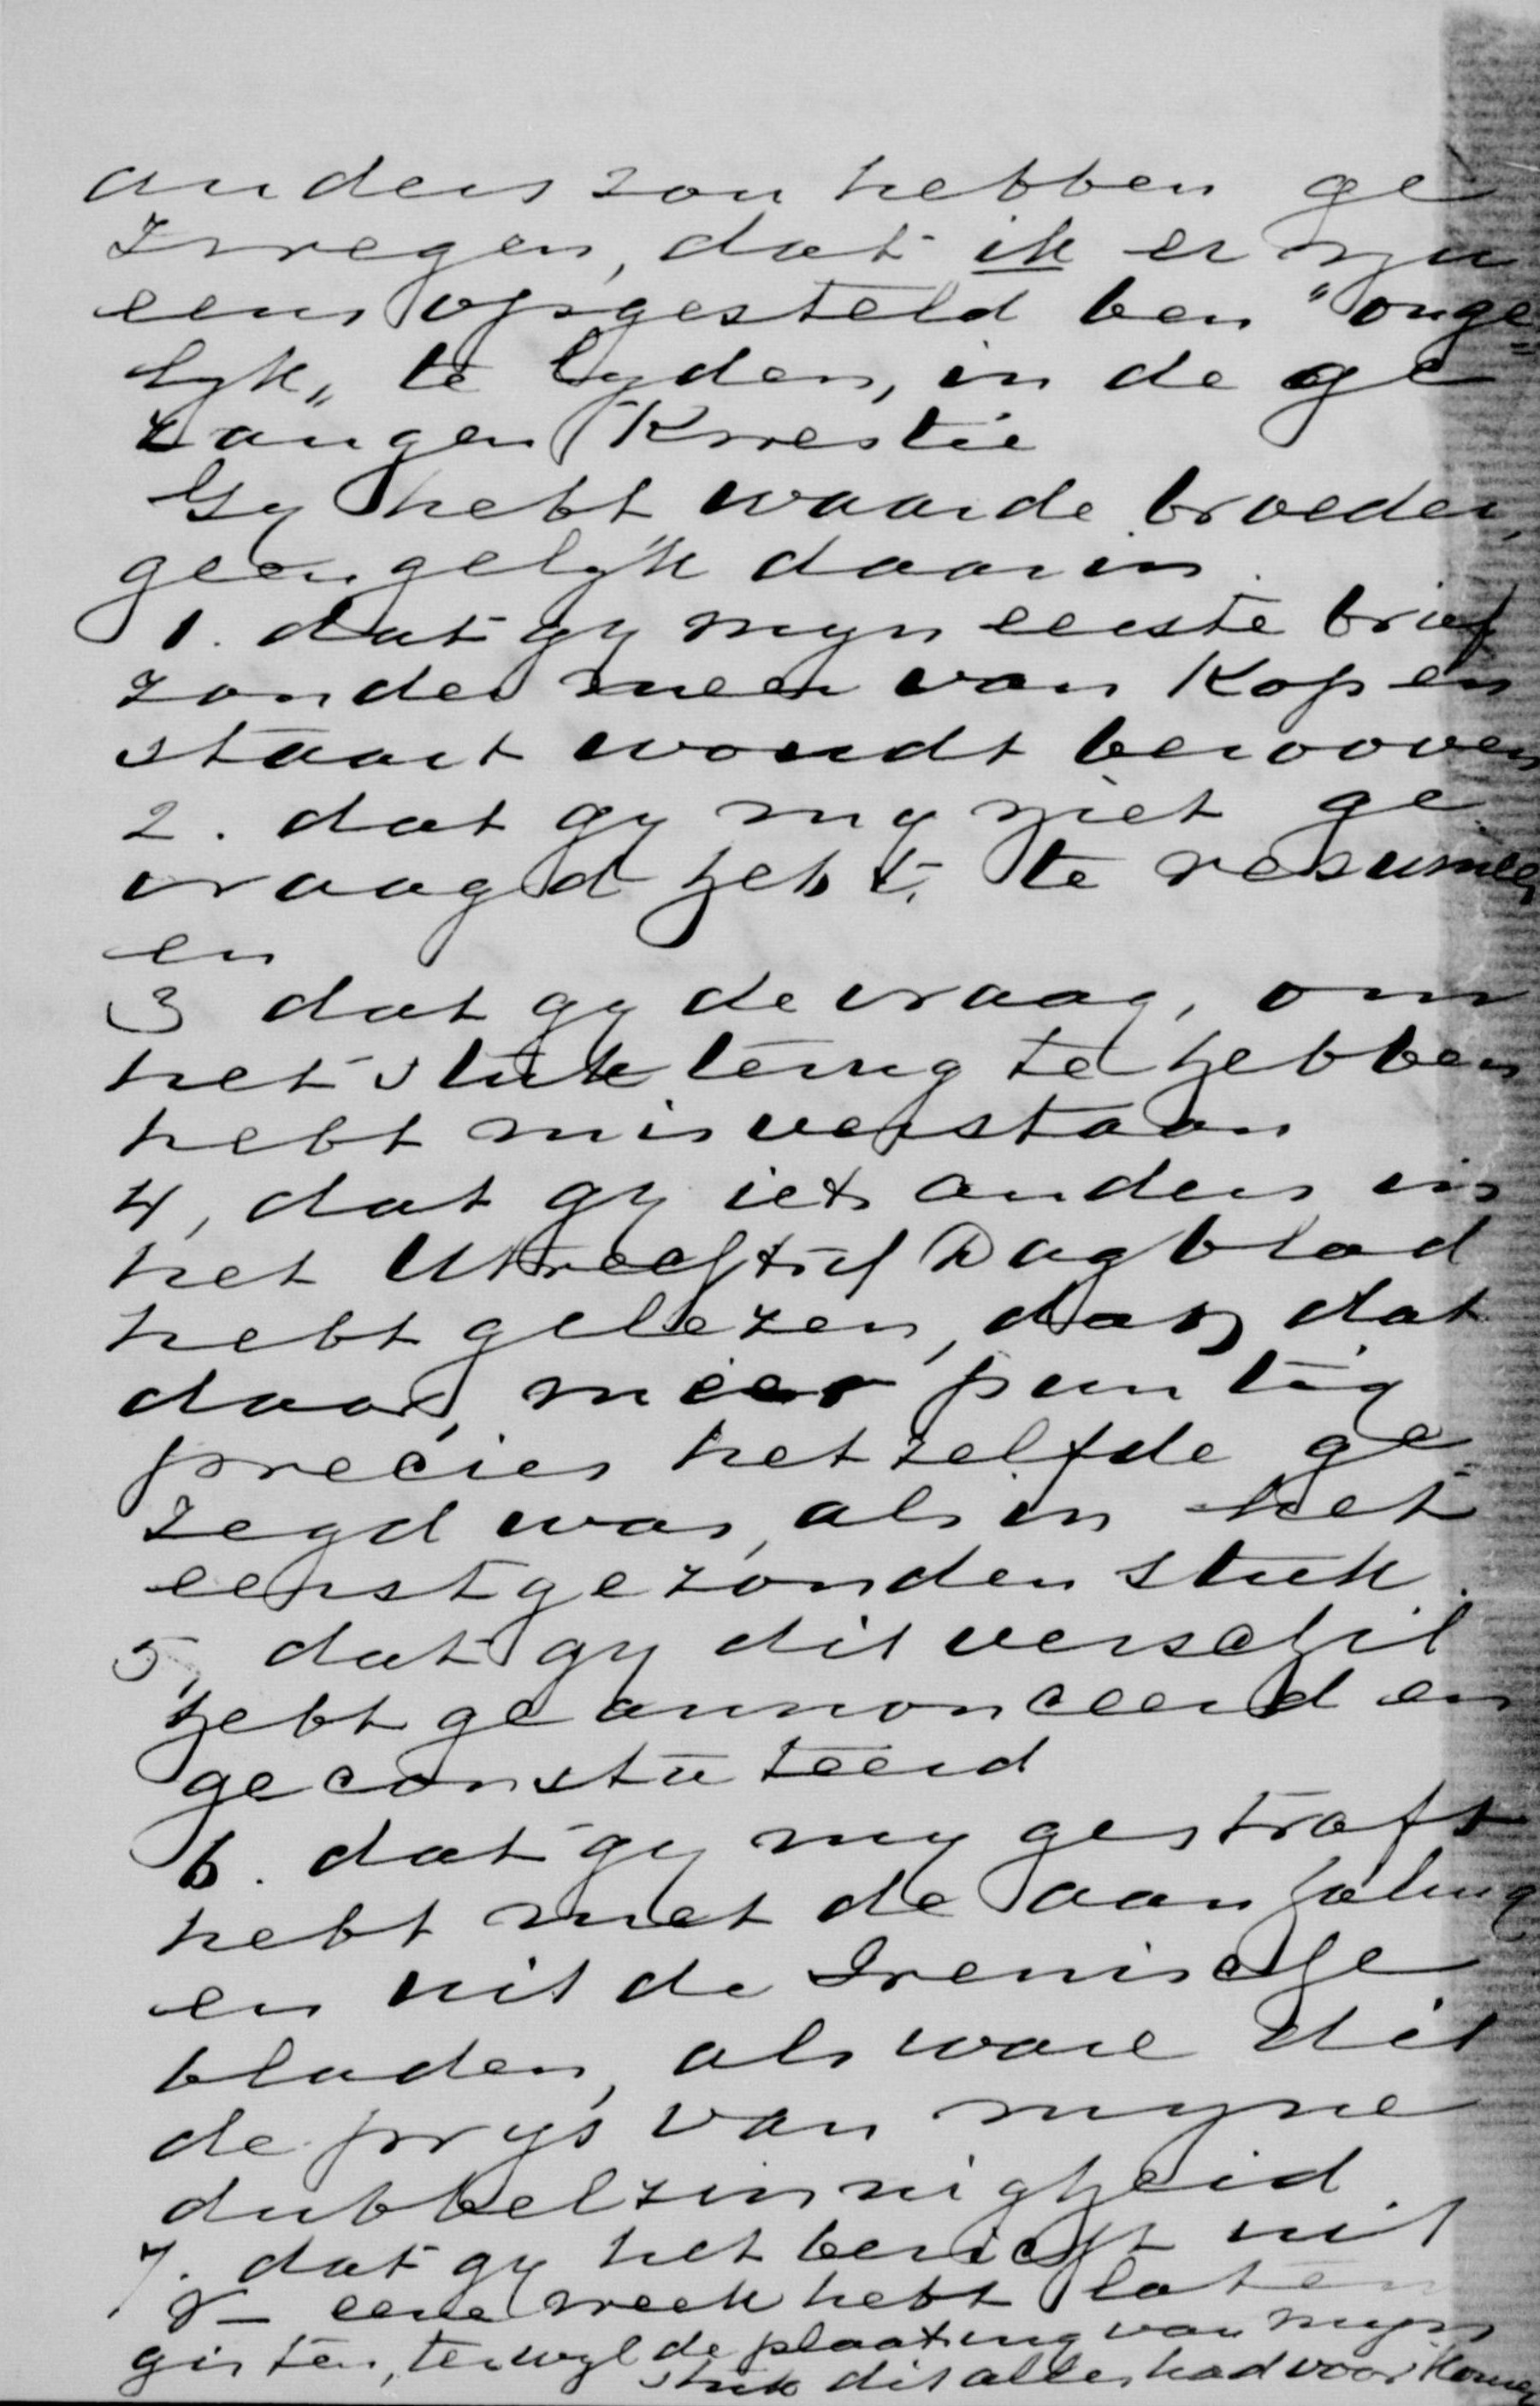 anders zou hebben ge
zwegen, dat ik er nu
eens opgesteld ben "onge=
lyk„ te lyden, in de ge
zangen Kwestie
Gy hebt waarde broeder,
geen gelyk daarin.
1. dat gy myn eerste brief
zonder meer van Kop en
staart woudt berooven
2. dat gy my niet ge
vraagd hebt, te resumee
en
3 dat gy de vraag, om
het stuk terug te hebben
hebt misverstaan
4, dat gy iets anders in
het Utrechtsch Dagblad
hebt gelezen, dan dat
daar, meer puntig
precies hetzelfde ge=
zegd was, als in het
eerst gezonden stuk.
5, dat gy dit verschil
hebt geannonceerd en
geconstateerd
6. dat gy my gestraft
hebt met de aanhaling
en uit de Irenische
bladen, als ware dit
de prys van myne
dubbelzinnigheid.
7. dat gy het bericht uit
eene week hebt laten
gisten, terwyl de plaatsing van myn
stuk dit alles had voorkomen